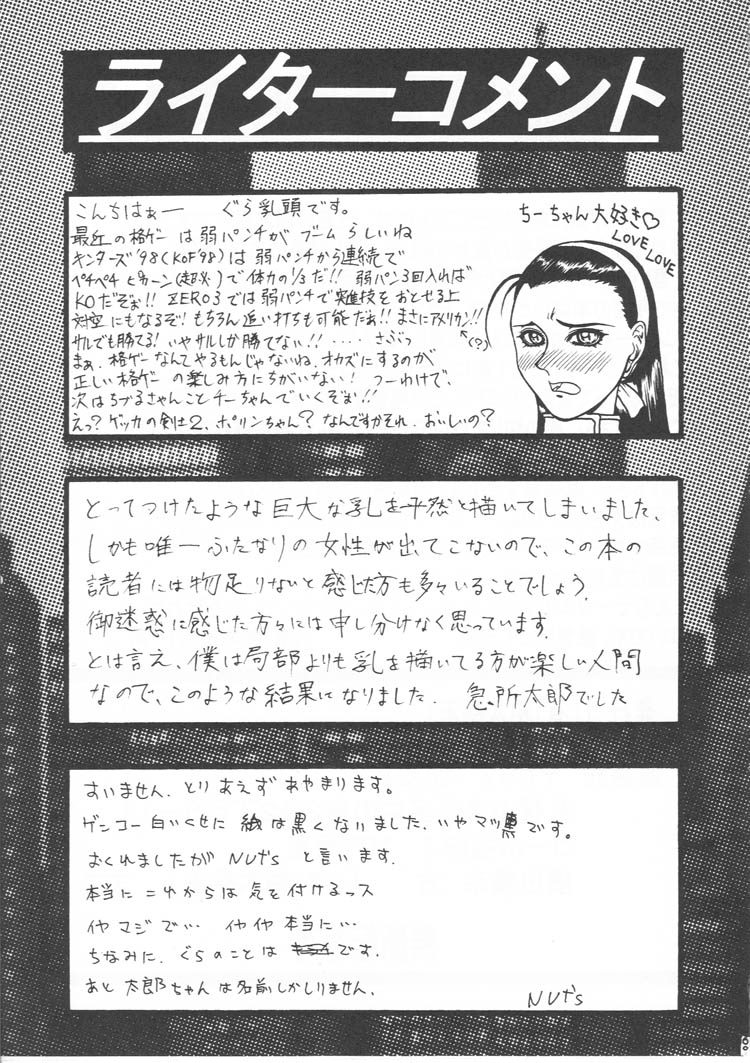 ライターコメント
こんちはぁー ぐら乳頭です。
最近の格ゲーは弱パンチがブームらしいね
キンターズ'98(KOF'98)は弱パンチから連続で
ペチペチピキーン(超必)で体力の1/3だ!! 弱パン3回入れば
KOだぞぉ!! ZERO3では弱パンチで突進技をおとせる上
対空にもなるぞ!もちろん追い打ちも可能だぁ!!まさにアメリカン!!
サルでも勝てる!いやサルしか勝てない!!‥‥さぶっ
まぁ、格ゲーなんてやるもんじゃないね、オカズにするのが
正しい格ゲーの楽しみ方にちがいない! つーわけで、
次はちづるさんことチーちゃんでいくぞぉ!!
えっ?ゲッカの剣士2、ポリンちゃん?なんですかそれ、おいしいの?
ちーちゃん大好き♡
LOVE LOVE
(?)
とってつけたような巨大な乳を平然と描いてしまいました、
しかも唯一ふたなりの女性が出てこないので、この本の
読者には物足りないと感じた方も多々いることでしょう.
御迷惑に感じた方々には申し分けなく思っています.
とは言え、僕は局部よりも乳を描いてる方が楽しい人間
なので、このような結果になりました. 急所太郎でした
すいません.とりあえずあやまります。
ゲンコー白いくせに 紙は黒くないました.いやマッ黒です。
おくれましたが NUt's と言います.
本当に これからは気を付けるっス
イヤマジで… イヤイヤ本当に…
ちなみに.ぐらのことは です.
あと 太郎ちゃんは名前しかしりません.
NUt's